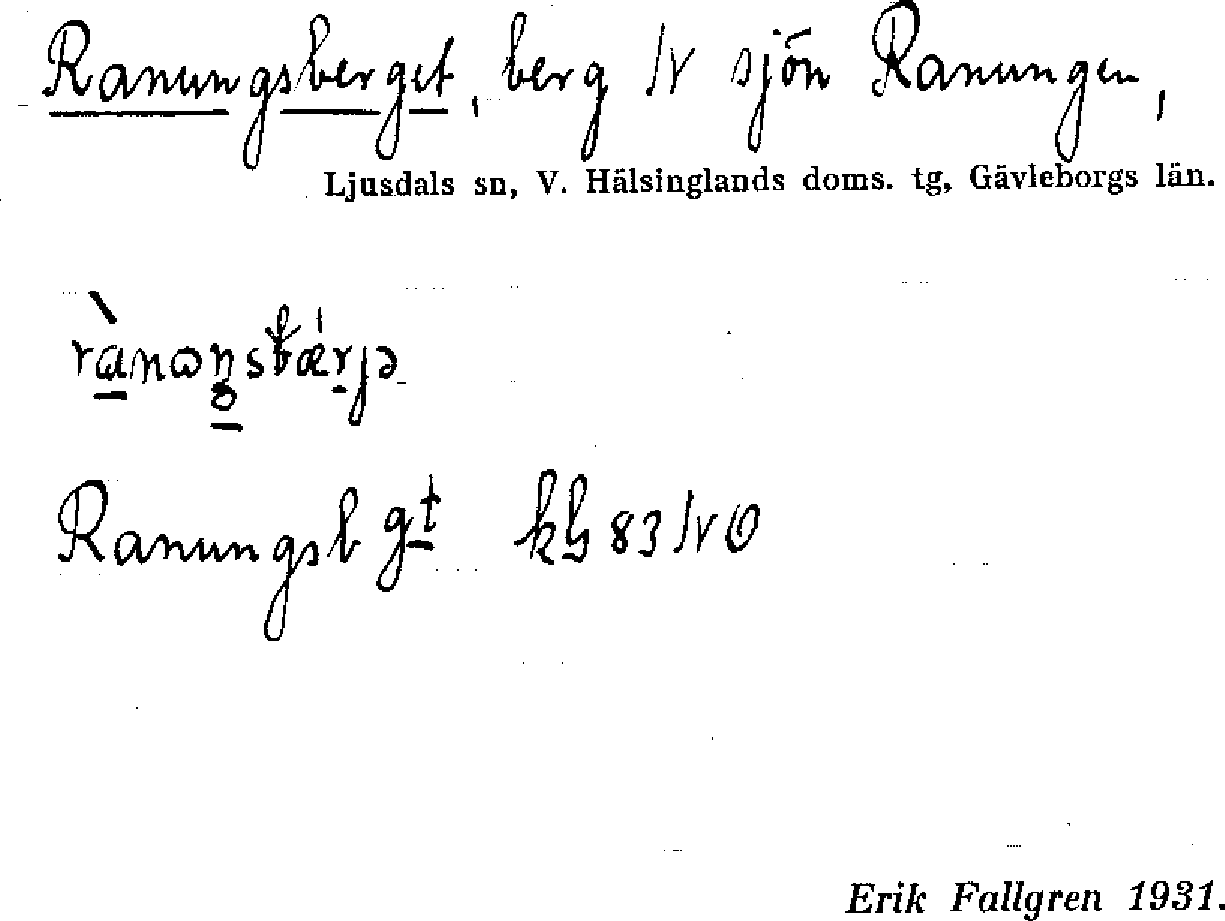 Ranungsberget, berg N sjön Ranungen,
Ljusdals sn, V. Hälsinglands doms. tg, Gävleborgs län.
Ranungsbgt 83 NO
Erik Fallgren 1931.